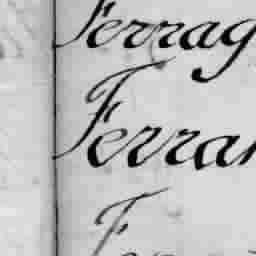 Ferrag
Ferran
Fe